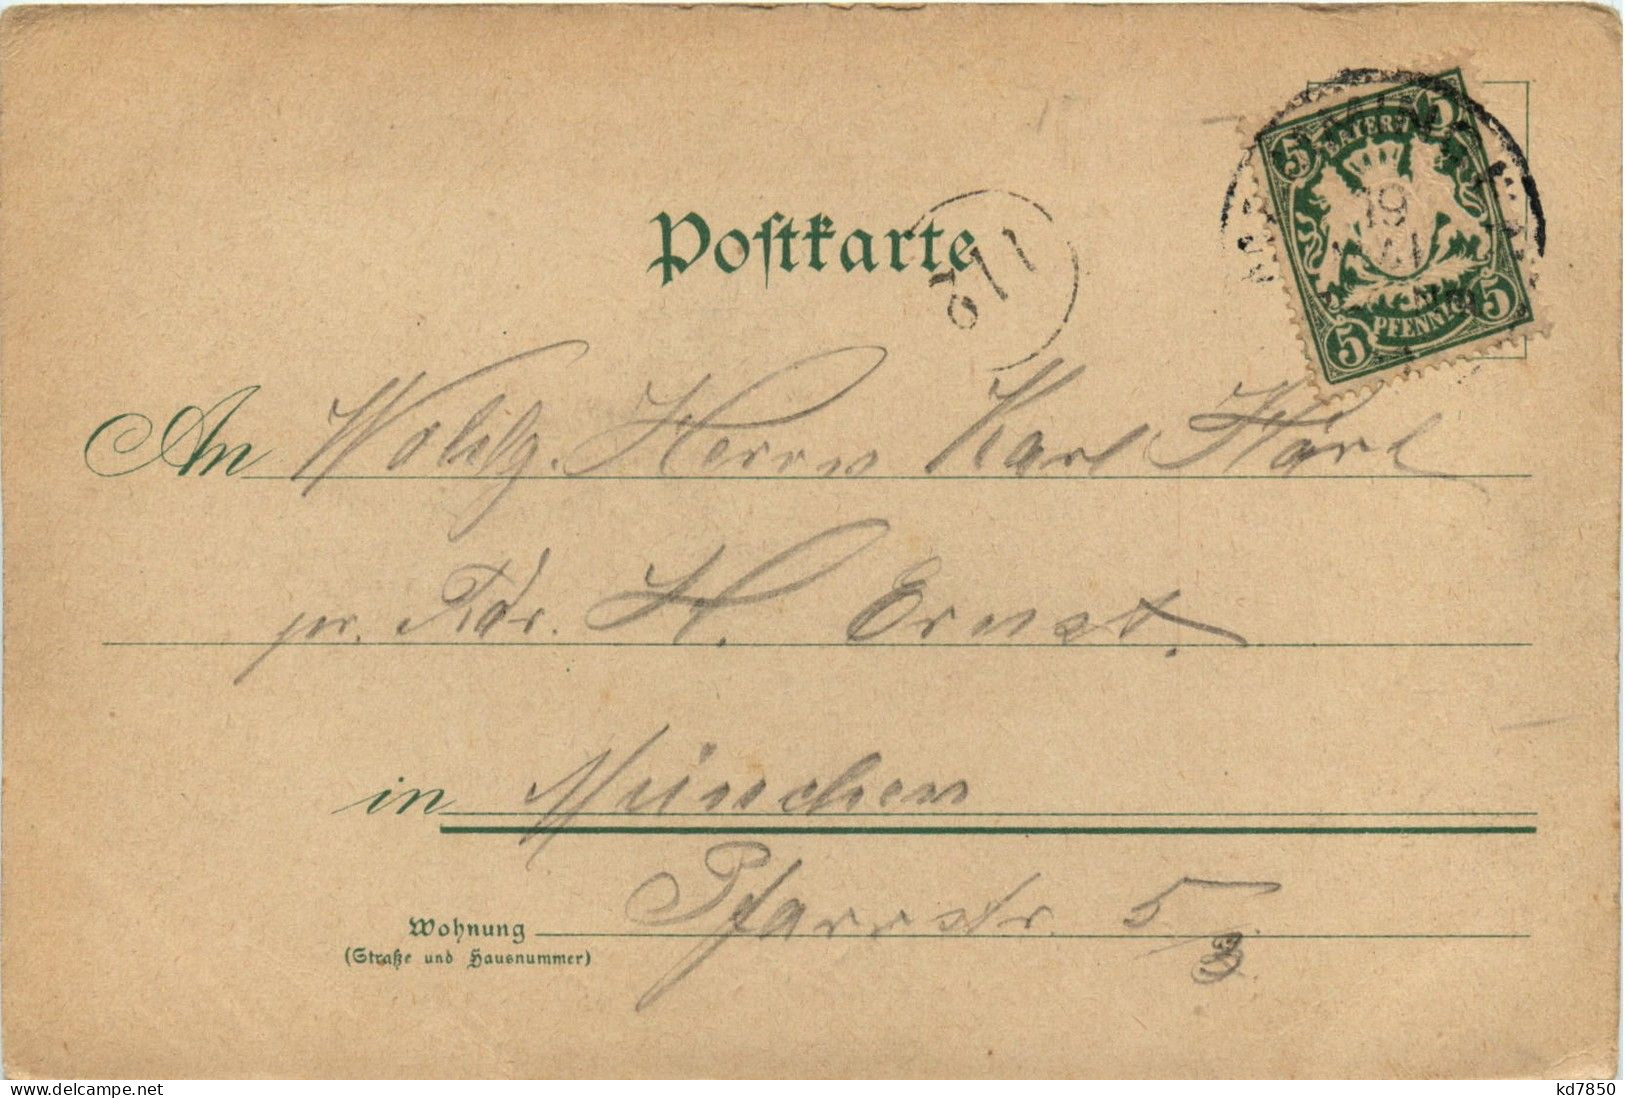 Postkarte
5 BAYERN 5
19
MAI
5 PFENNIG 5
11/2
An Wohlg. Herrn Karl Härl
pr. Adr. H. Ernst.
in München
Wohnung Pfarrstr. 5/3
(Straße und Hausnummer)
www.delcampe.net
kd7850